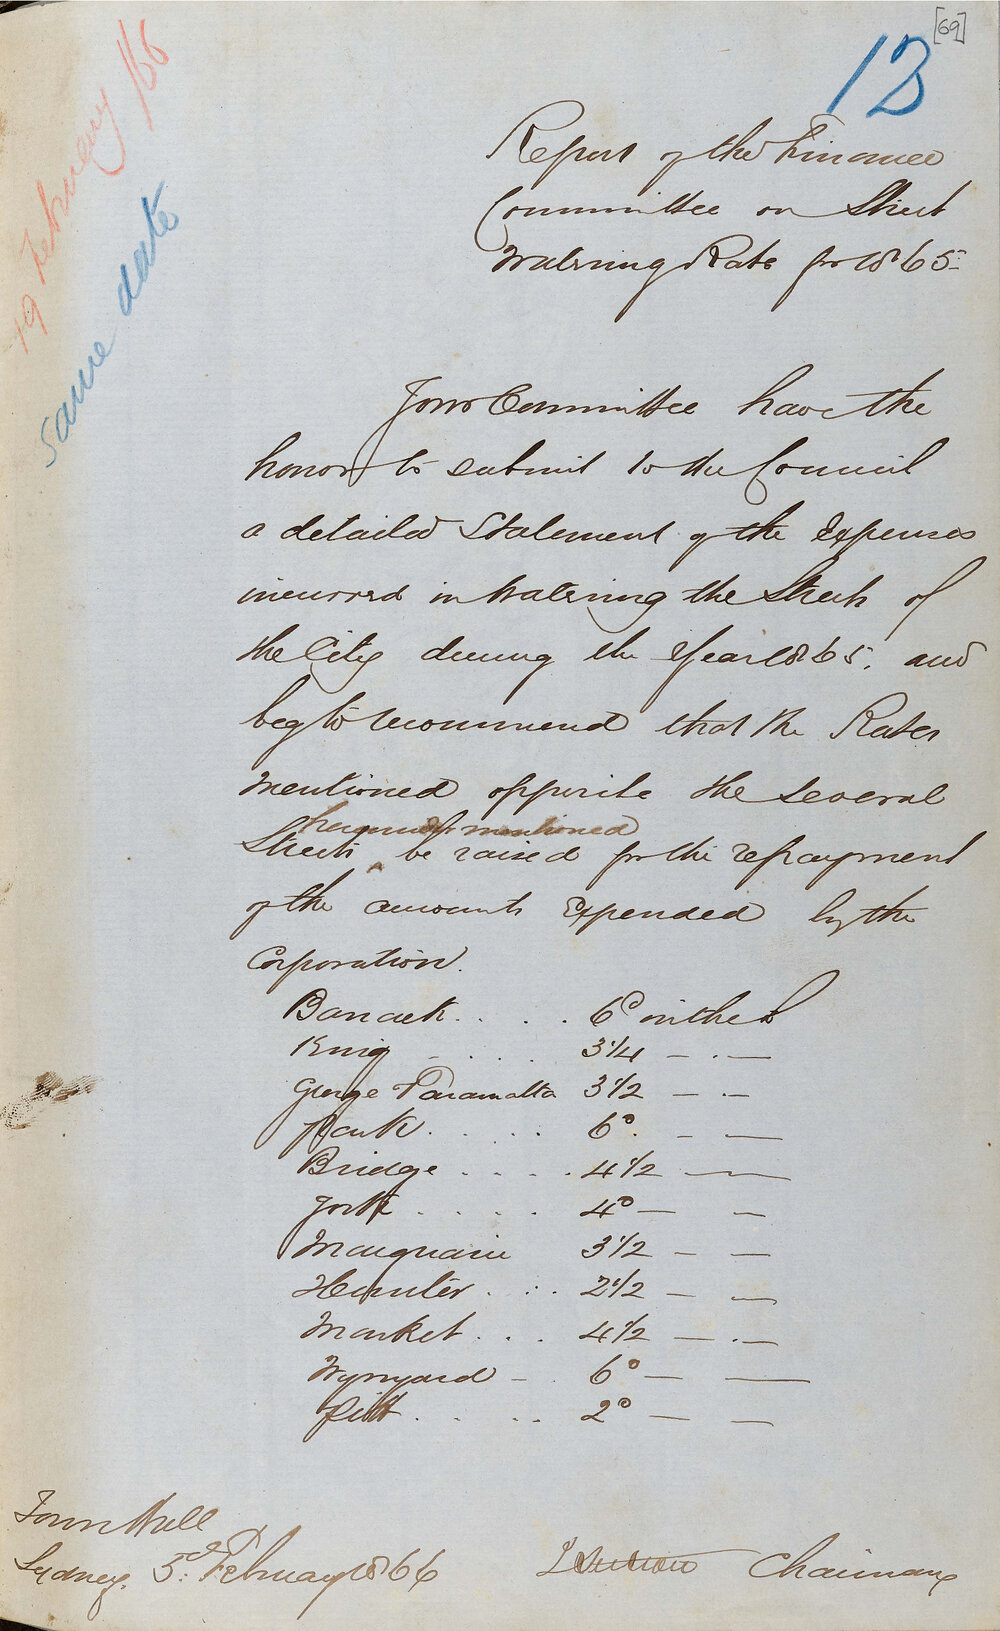 [69]
13
19 February /66
same date
Report of the Finance
Committee on Street
Watering Rate for 1865.
Your Committee have the
honor to submit to the Council
a detailed Statement of the Expenses
incurred in Watering the Streets of
the City during the Year 1865. and
beg to recommend that the Rates
mentioned opposite the several
hereunder mentioned
Streets ^ be raised for the repayment
of the amounts Expended by the
Corporation.
Barrack . . . . 6d in the £
King . . . . 3 1/4 — . —
George & Paramatta 3 1/2 — . —
Park . . . . . 6d. — —
Bridge . . . . 4 1/2 — —
York . . . . 4d — —
Macquarie 3 1/2 — —
Hunter . . . . 2 1/2 — —
Market . . . 4 1/2 — . —
Wynyard — . 6d — —
Pitt . . . . 2d — —
Town Hall
Sydney. 5th February 1866
Chairman